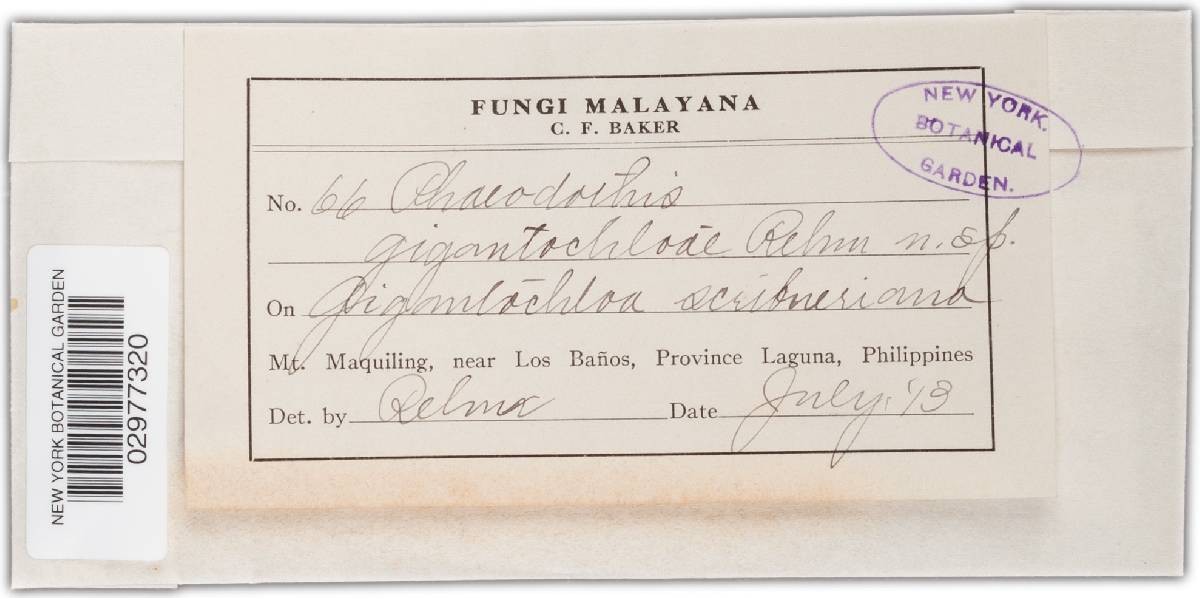 FUNGI MALAYANA
C. F. BAKER
NEW YORK.
BOTANICAL
GARDEN.
No. 66 Phaeodothis
gigantochloae Rehm n. sp.
On Gigantochloa scribneriana
Mt. Maquiling, near Los Baños, Province Laguna, Philippines
Det. by Rehm Date July, '13
NEW YORK BOTANICAL GARDEN
02977320